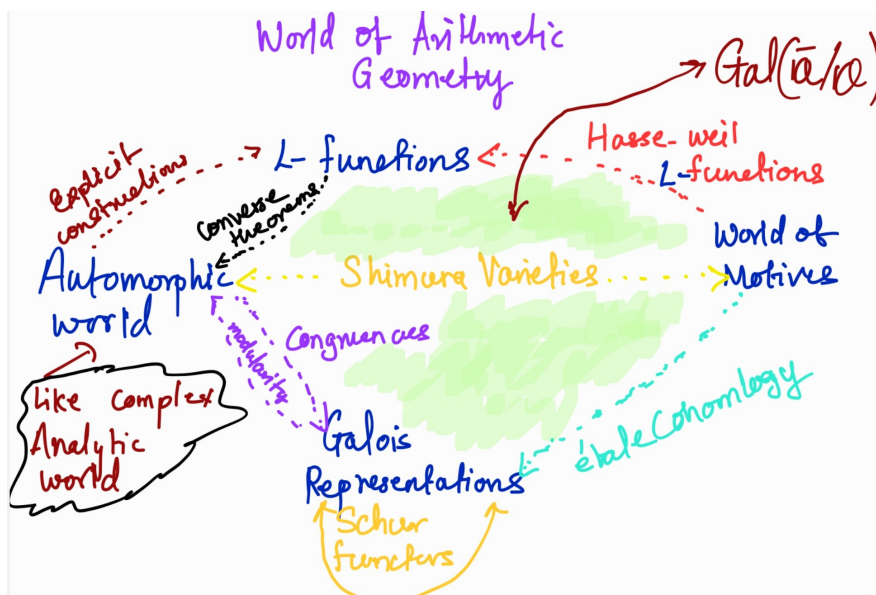 World of Arithmetic
Geometry
Gal(Q̄/Q)
Explicit
constructions
L- functions
Hasse-weil
L-functions
Converse
theorems
Automorphic
world
Shimura Varieties
World of
Motives
modularity
Congruences
Like Complex
Analytic
world
Galois
Representations
étale Cohomlogy
Schur
functors